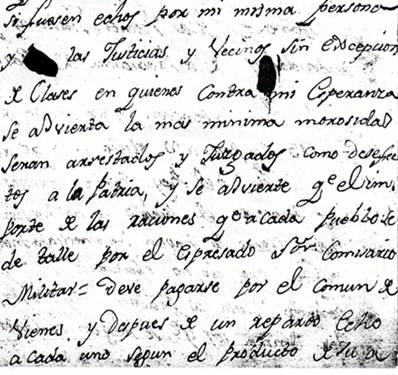 si fuesen echos por mi misma persona
y las Justicias y Vecinos sin excepcion
de Clases en quienes contra mi Esperanza
se advierta la mas minima morosidad
seran arrestados y Juzgados como desefec
tos a la Patria, y se advierte qe el im
porte de las raciones qe a cada pueblo se
de talle por el espresado Sor Comisario
Militar= deve pagarse por el comun de
Vienes y despues de un reparto Echo
a cada uno segun el producto de su a